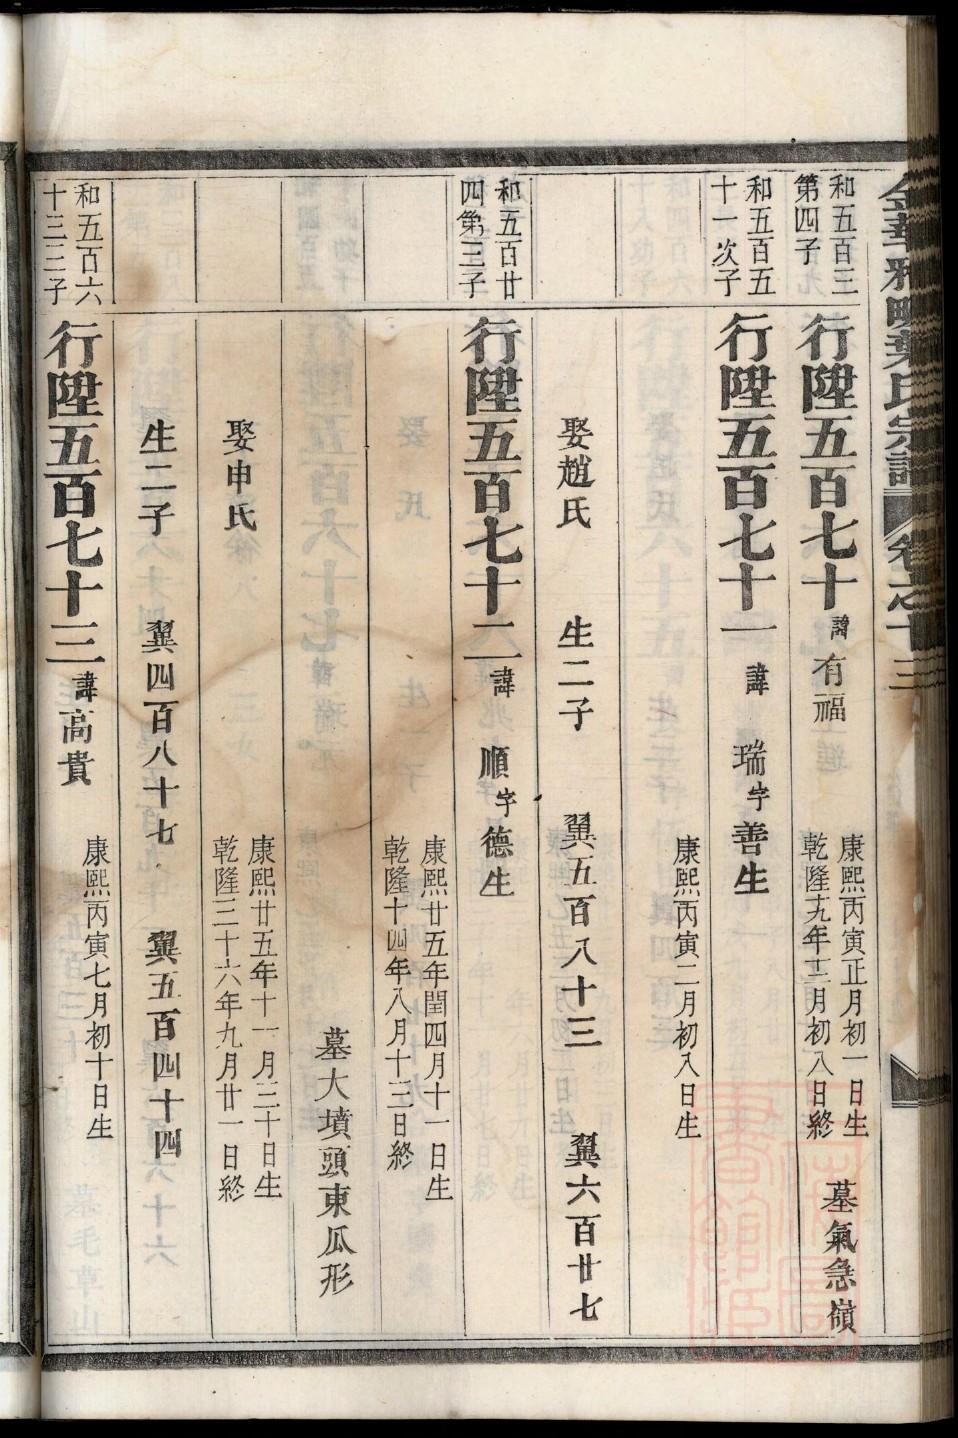 金華雅畈葉氏宗譜 卷之十三
和五百三
第四子
行陞五百七十 諱有福
康熙丙寅正月初一日生
乾隆十九年十二月初八日終
墓氣急嶺
和五百五
十一次子
行陞五百七十一 諱瑞 字善生
康熙丙寅二月初八日生
娶趙氏 生二子 翼五百八十三 翼六百廿七
和五百廿
四第三子
行陞五百七十二 諱順 字德生
康熙廿五年閏四月十一日生
乾隆十四年八月十三日終
墓大墳頭東瓜形
娶申氏
康熙廿五年十一月二十日生
乾隆三十六年九月廿一日終
生二子 翼四百八十七 翼五百四十四
和五百六
十三三子
行陞五百七十三 諱高貴
康熙丙寅七月初十日生